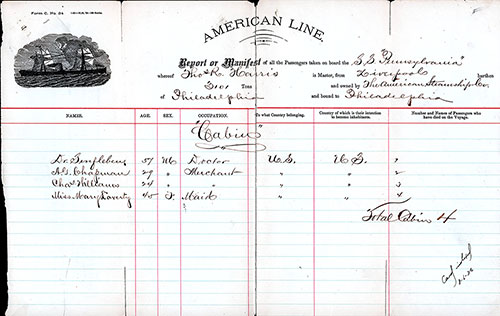 Form C. No. 54
AMERICAN LINE.
Report or Manifest of all the Passengers taken on board the S.S. "Pennsylvania"
whereof Thos. R. Harris is Master, from Liverpool burthen
Tons and owned by The American Steamship Co.
of Philadelphia and bound to Philadelphia
NAMES. AGE. SEX. OCCUPATION. To what Country belonging. Country of which is their intention to become inhabitants. Number and Names of Passengers who have died on the Voyage.
"Cabin"
57 M. Doctor U.S. U.S. 1
Chapman 29 " Merchant " " 2
Chas. Williams 24 " " " " 3
Miss Mary 45 F. Maid " " 4
Total Cabin 4